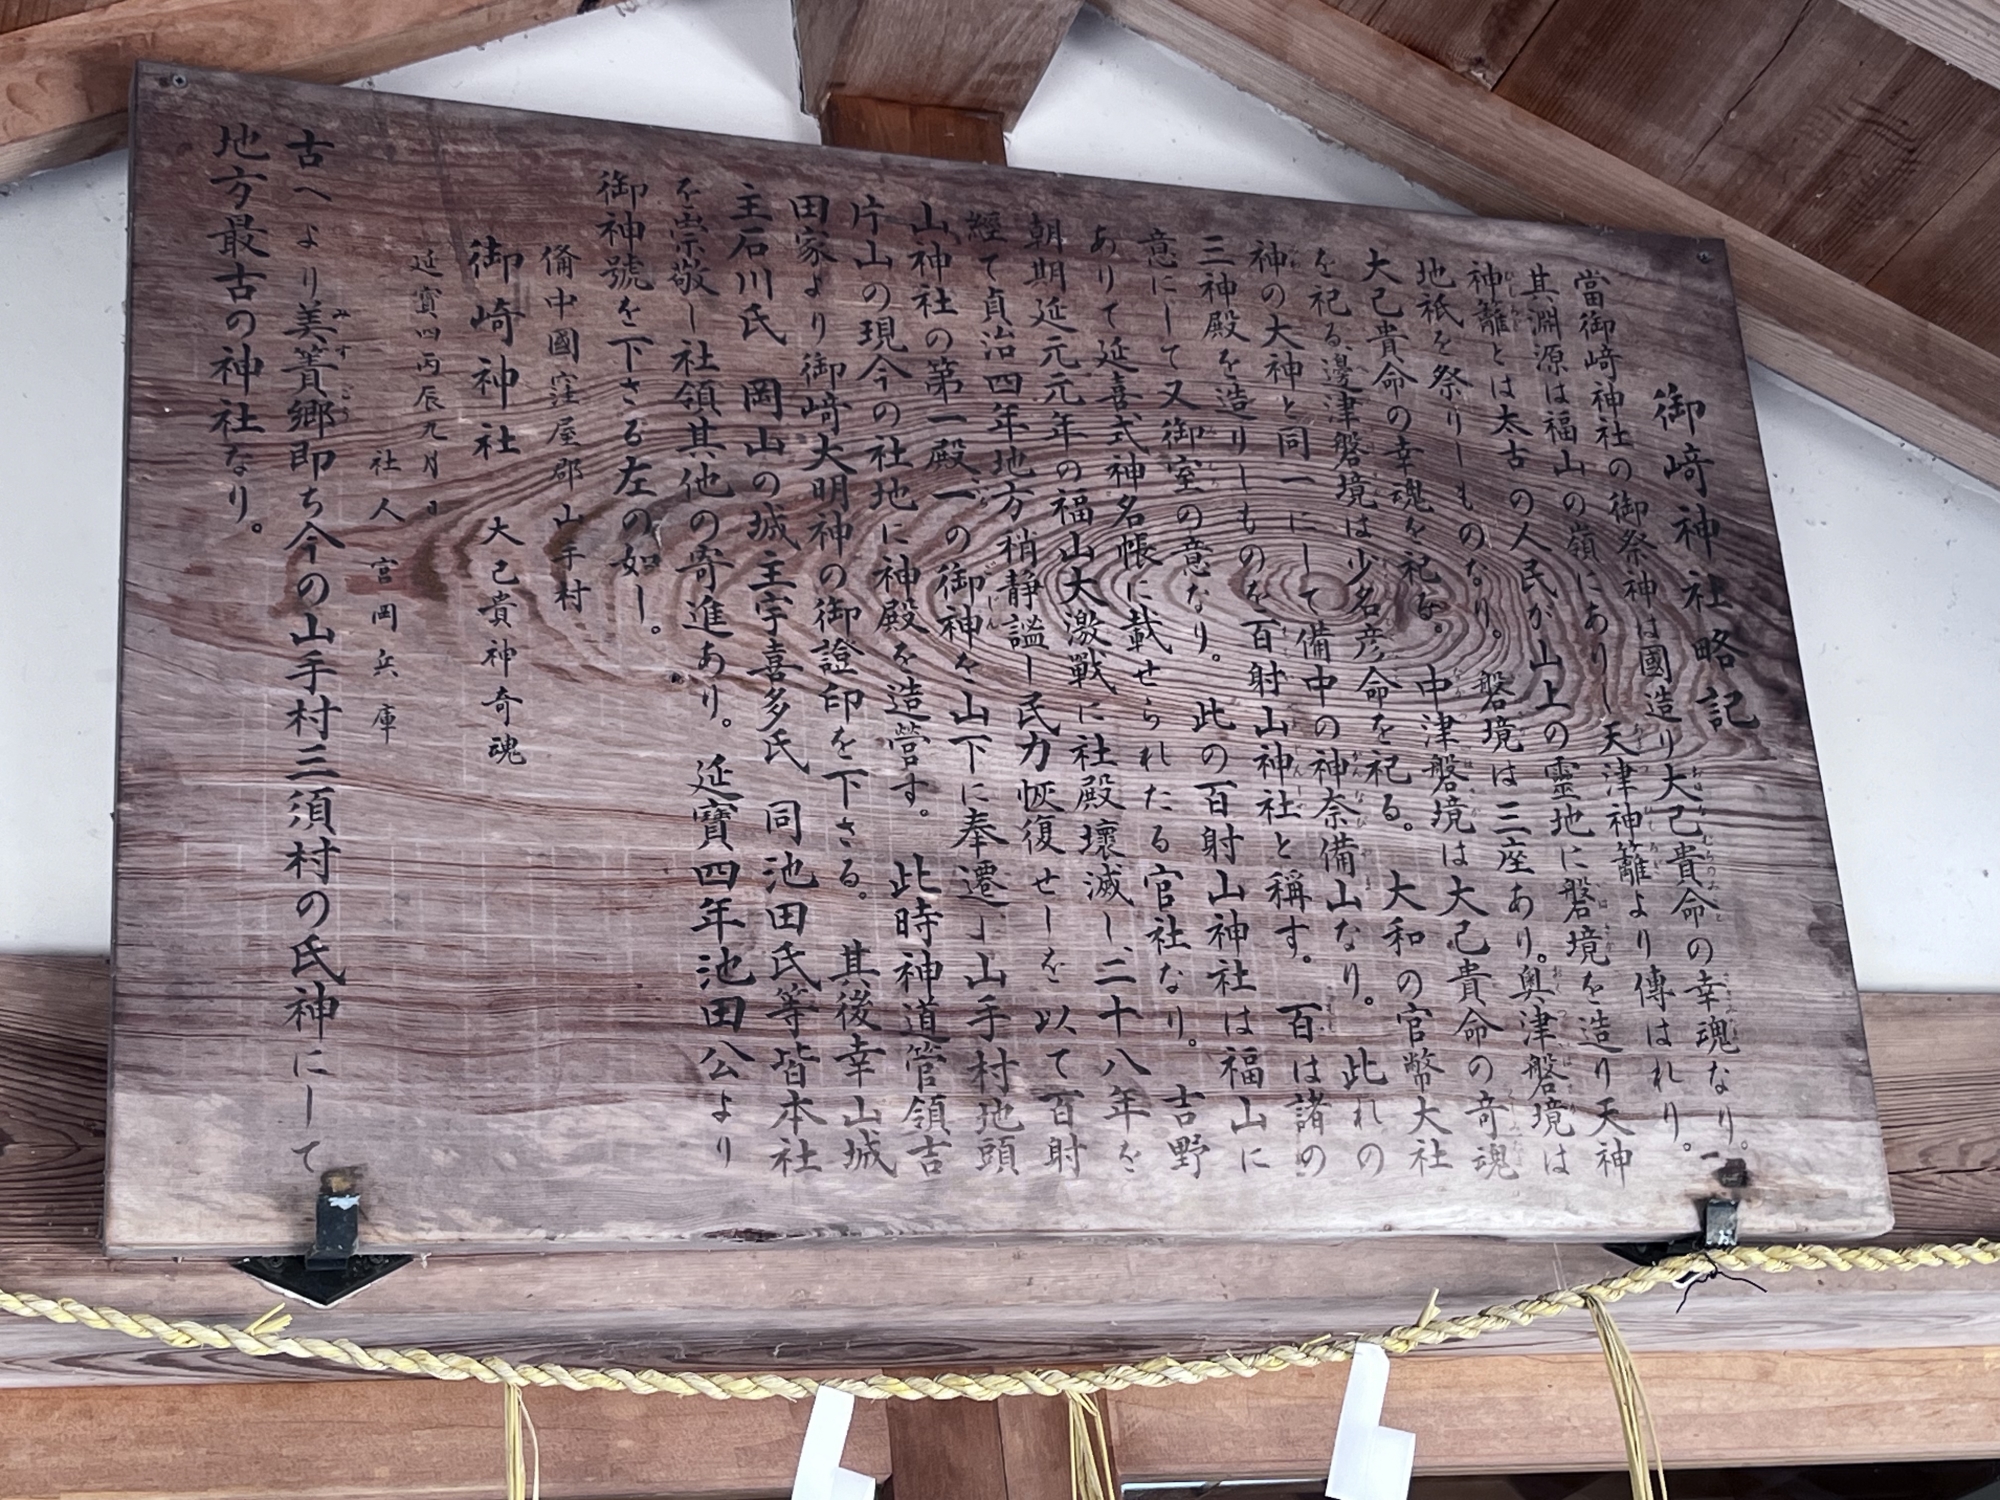 御﨑神社略記
當御﨑神社の御祭神は國造り大己貴命の幸魂なり。
其淵源は福山の嶺にありし天津神籬より傳はれり。
神籬とは太古の人民が山上の靈地に磐境を造り天神
地祇を祭りしものなり。磐境は三座あり。奥津磐境は
大己貴命の幸魂を祀る。中津磐境は大己貴命の奇魂
を祀る、邊津磐境は少名彦命を祀る。大和の官幣大社
神の大神と同一にして備中の神奈備山なり。此れの
三神殿を造りしものを百射山神社と稱す。百は諸の
意にして又御室の意なり。此の百射山神社は福山に
ありて延喜式神名帳に載せられたる官社なり。吉野
朝期延元元年の福山大激戰に社殿壞滅し、二十八年を
經て貞治四年地方稍静謐し民力恢復せしを以て百射
山神社の第一殿一の御神を山下に奉遷し山手村地頭
片山の現今の社地に神殿を造営す。此時神道管領吉
田家より御﨑大明神の御證印を下さる。其後幸山城
主石川氏 岡山の城主宇喜多氏 同池田氏等皆本社
を崇敬し社領其他の寄進あり。延寶四年池田公より
御神號を下さる左の如し。
俻中國窪屋郡山手村
御﨑神社 大己貴神奇魂
延寶四丙辰九月日
社人 宮岡兵庫
古へより美簀郷即ち今の山手村三須村の氏神にして
地方最古の神社なり。